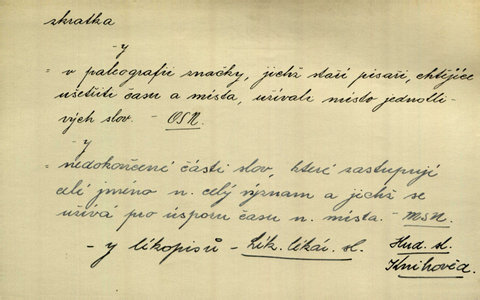 zkratka
-y
= v paleografii značky, jichž staří pisaři, chtějíce
ušetřiti času a místa, užívali místo jednotli-
vých slov. - OSN.
-y
= nedokončené části slov, které zastupují
celé jméno n. celý význam a jichž se
užívá pro úsporu času n. místa. - MSN.
- y lékopisů - Lék. lékár. sl. Hud. sl.
Knihověd.